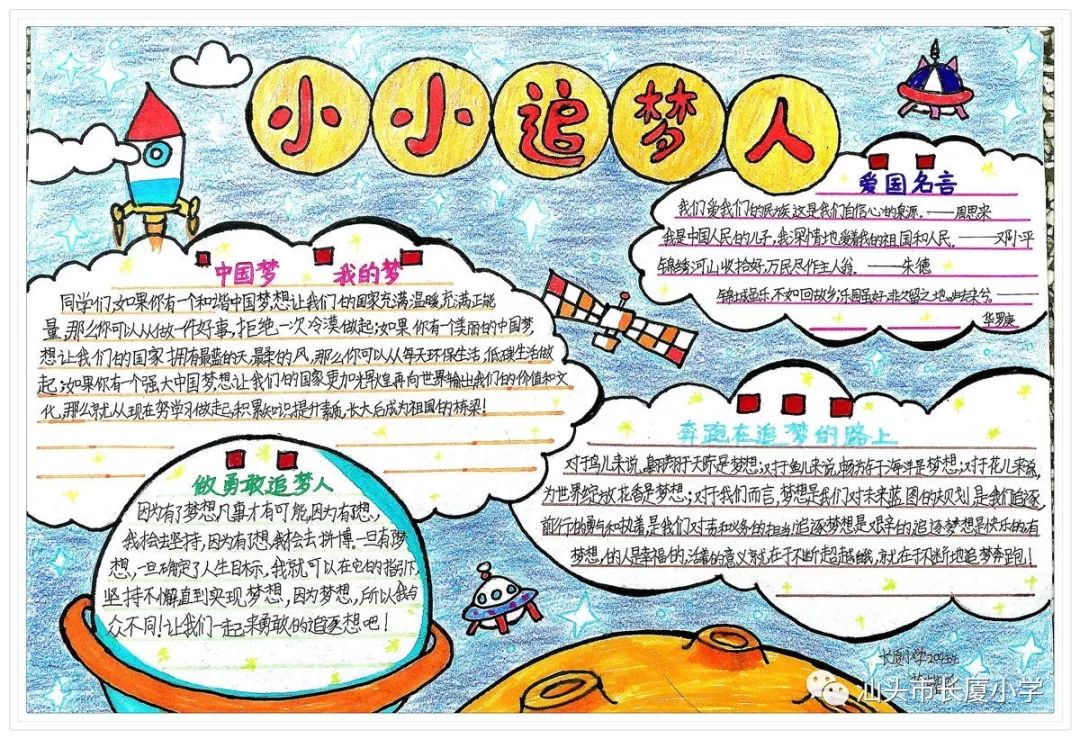 小小追梦人
爱国名言
我们爱我们的民族,这是我们自信心的泉源。——周恩来
我是中国人民的儿子,我深情地爱着我的祖国和人民。——邓小平
锦绣河山收拾好,万民尽作主人翁。——朱德
锦城虽乐,不如回故乡;乐园虽好,非久留之地。归去来兮。——
华罗庚
中国梦 我的梦
同学们,如果你有一个和谐中国梦,想让我们的国家充满温暖,充满正能
量,那么你可以从做一件好事,拒绝一次冷漠做起;如果你有一个美丽的中国梦,
想让我们的国家拥有最蓝的天,最柔的风,那么你可以从每天环保生活,低碳生活做
起;如果你有一个强大中国梦,想让我们的国家更加辉煌再向世界输出我们的价值和文
化,那么就从现在努学习做起,积累知识提升素质,长大后成为祖国的桥梁!
奔跑在追梦的路上
对于鸟儿来说,翱翔于天际是梦想;对于鱼儿来说,畅游于海洋是梦想;对于花儿来说,
为世界绽放花香是梦想;对于我们而言,梦想是我们对未来蓝图的规划,是我们追逐
前行的勇气和执着,是我们对责和义务的担当!追逐梦想是艰辛的,追逐梦想是快乐的,有
梦想,的人是幸福的,活着的意义就在于不断超越,就在于不断地追梦奔跑!
做勇敢追梦人
因为有了梦想,凡事才有可能,因为有理想,
我才会去坚持,因为有理想,我才会去拼博。一旦有梦
想,一旦确定了人生目标,我就可以在它的指引下,
坚持不懈直到实现梦想,因为梦想,所以我与
众不同!让我们一起来勇敢的追逐想吧!
长厦小学
汕头市长厦小学